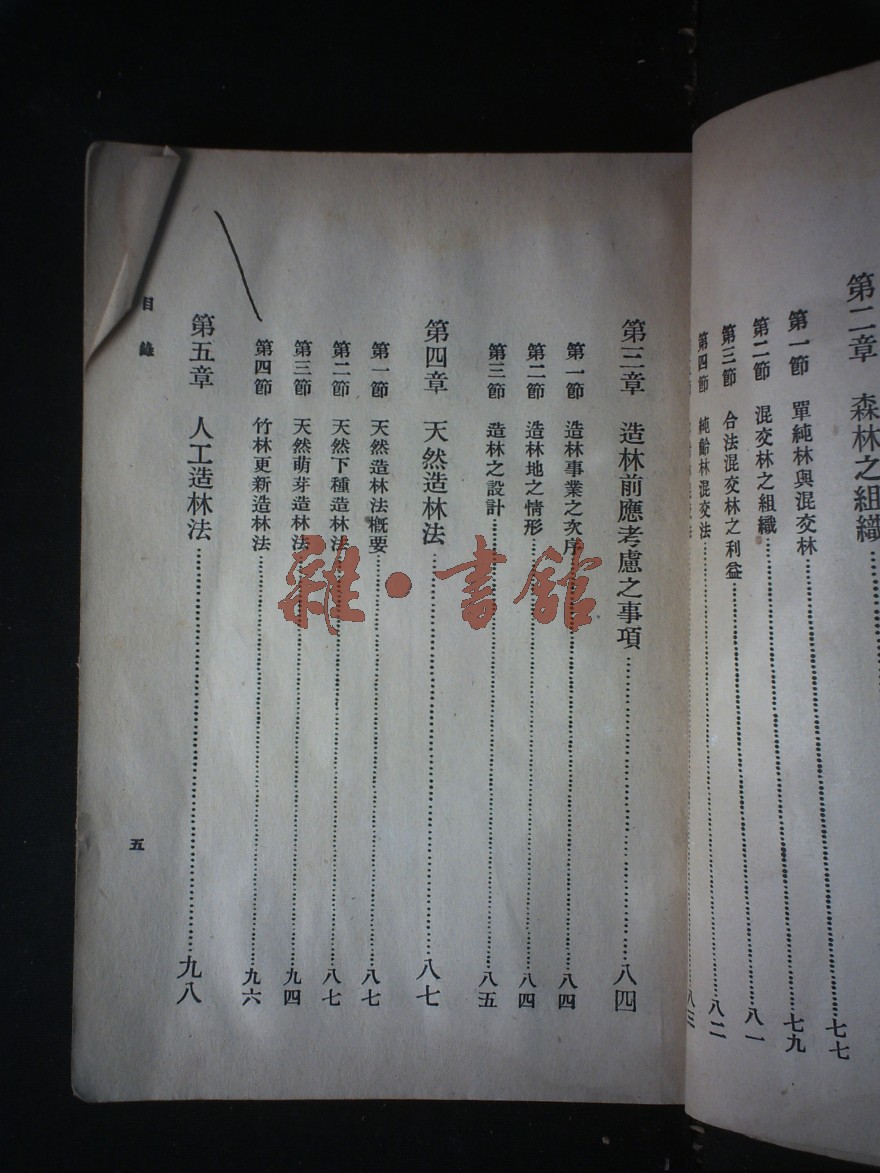 第二章　森林之組織…………七七
第一節　單純林與混交林…………七九
第二節　混交林之組織…………八一
第三節　合法混交林之利益…………八二
第四節　純齡林混交法…………八三
第三章　造林前應考慮之事項…………八四
第一節　造林事業之次序…………八四
第二節　造林地之情形…………八四
第三節　造林之設計…………八五
第四章　天然造林法…………八七
第一節　天然造林法概要…………八七
第二節　天然下種造林法…………八七
第三節　天然萌芽造林法…………九四
第四節　竹林更新造林法…………九六
第五章　人工造林法…………九八
目錄
五
雜·書館